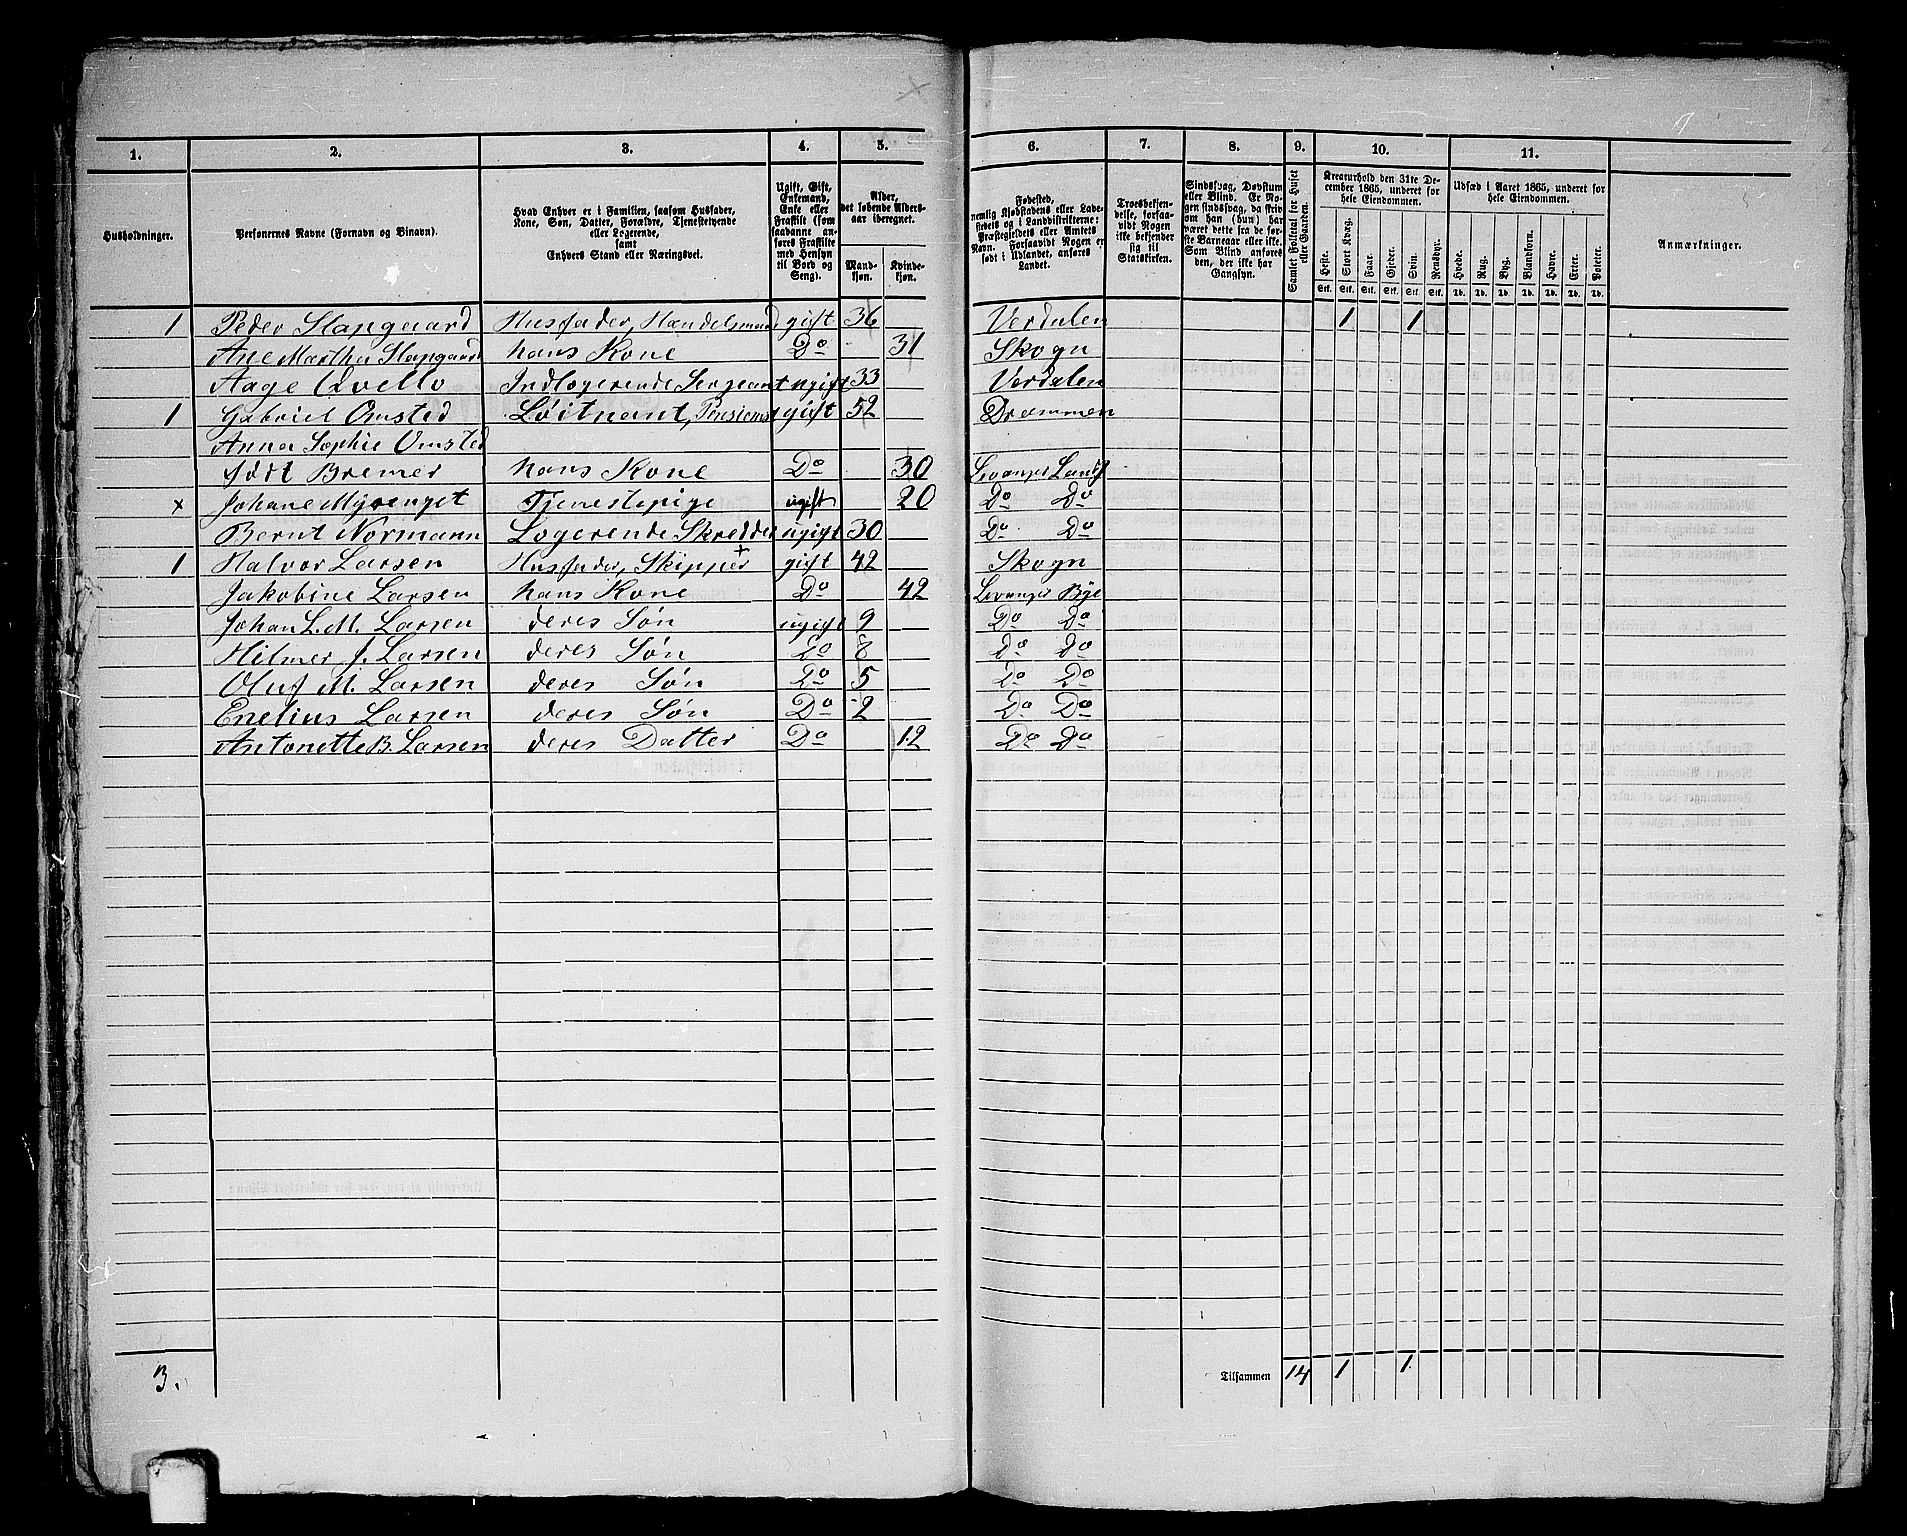 1. 2. 3. 4. 5. 6. 7. 8. 9. 10. 11.
Husholdninger.
Personernes Navne (Fornavn og Binavn).
Hvad Enhver er i Familien, saasom Husfader,
Kone, Søn, Datter, Forældre, Tjenestetyende
eller Logerende,
samt
Enhvers Stand eller Næringsvei.
Ugift, Gift,
Enkemand,
Enke eller
Fraskilt (som
saadanne an-
føres Fraskilte
med Hensyn
til Bord og
Seng).
Alder,
det løbende Alders-
aar iberegnet.
Mand-
kjøn.
Kvinde-
kjøn.
Fødested,
nemlig Kjøbstadens eller Lade-
stedets og i Landdistrikterne:
Præstegjeldets eller Amtets
Navn. Forsaavidt Nogen er
født i Udlandet, anføres
Landet.
Troesbekjen-
delse, forsaa-
vidt Nogen
ikke bekjender
sig til
Statskirken.
Sindssvag, Døvstum
eller Blind. Er No-
gen sindssvag, da skriv
om han (hun) har
været dette fra de før-
ste Barneaar eller ikke.
Som Blind anføres
den, der ikke har
Gangsyn.
Samlet Folketal for Huset
eller Gaarden.
Kreaturhold den 31te De-
cember 1865, underet for
hele Eiendommen.
Heste. Stort Kvæg. Faar. Gjeder. Svin. Rensdyr.
Stk. Stk. Stk. Stk. Stk. Stk.
Udsæd i Aaret 1865, underet for
hele Eiendommen.
Hvede. Rug. Byg. Blandkorn. Havre. Erter. Poteter.
Td. Td. Td. Td. Td. Td. Td.
Anmærkninger.
1 Peder Slapgaard Husfader, Handelsmand gift 36 Verdalen 1 1
Ane Martha Slapgaard hans Kone Do 31 Skogn
Aage Qvello Indlogerende Sergeant ugift 33 Verdalen
1 Gabriel Omsted Løitnant, Pensionist gift 52 Drammen
Anna Sophie Omsted
født Bremer hans Kone Do 30 Levanger Lands
x Johane Myrenget Tjenestepige ugift 20 Do Do
Bernt Normann Logerende Skredder ugift 30 Do Do
1 Halvor Larsen Husfader, Skipper + gift 42 Skogn
Jakobine Larsen hans Kone Do 42 Levanger Bye
Johan L. M. Larsen deres Søn ugift 9 Do Do
Hilmer J. Larsen deres Søn Do 8 Do Do
Oluf M. Larsen deres Søn Do 5 Do Do
Enelius Larsen deres Søn Do 2 Do Do
Antonette B. Larsen deres Datter Do 12 Do Do
3. Tilsammen 14 1 1